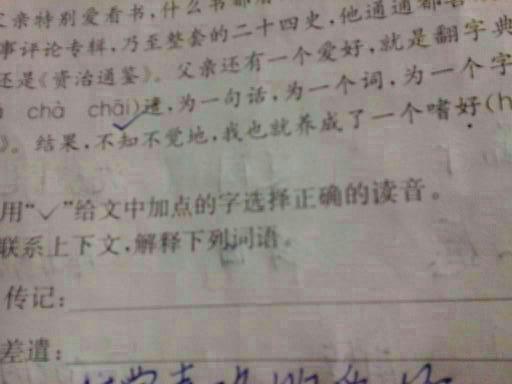 父亲特别爱看书，什么书都
事评论专辑，乃至整套的二十四史，他通通都
还是《资治通鉴》。父亲还有一个爱好，就是翻字典
chà chāi)遣，为一句话，为一个词，为一个字
》。结果，不知不觉地，我也就养成了一个嗜好(h
用“✓”给文中加点的字选择正确的读音。
联系上下文，解释下列词语。
传记：
差遣：